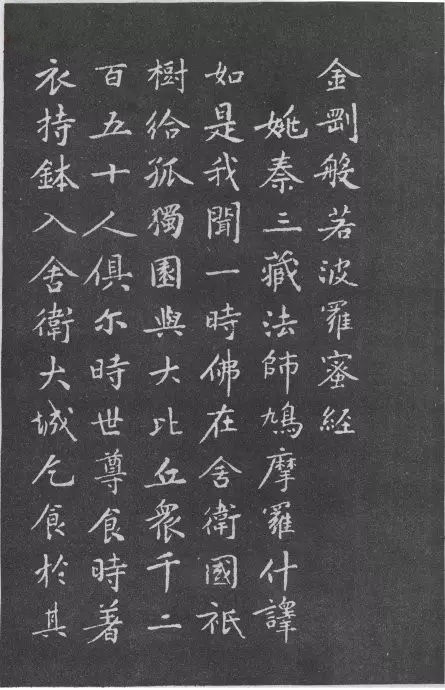 金剛般若波羅蜜經
姚秦三藏法師鳩摩羅什譯
如是我聞一時佛在舍衛國祇
樹給孤獨園與大比丘衆千二
百五十人俱尔時世尊食時著
衣持鉢入舍衛大城乞食於其